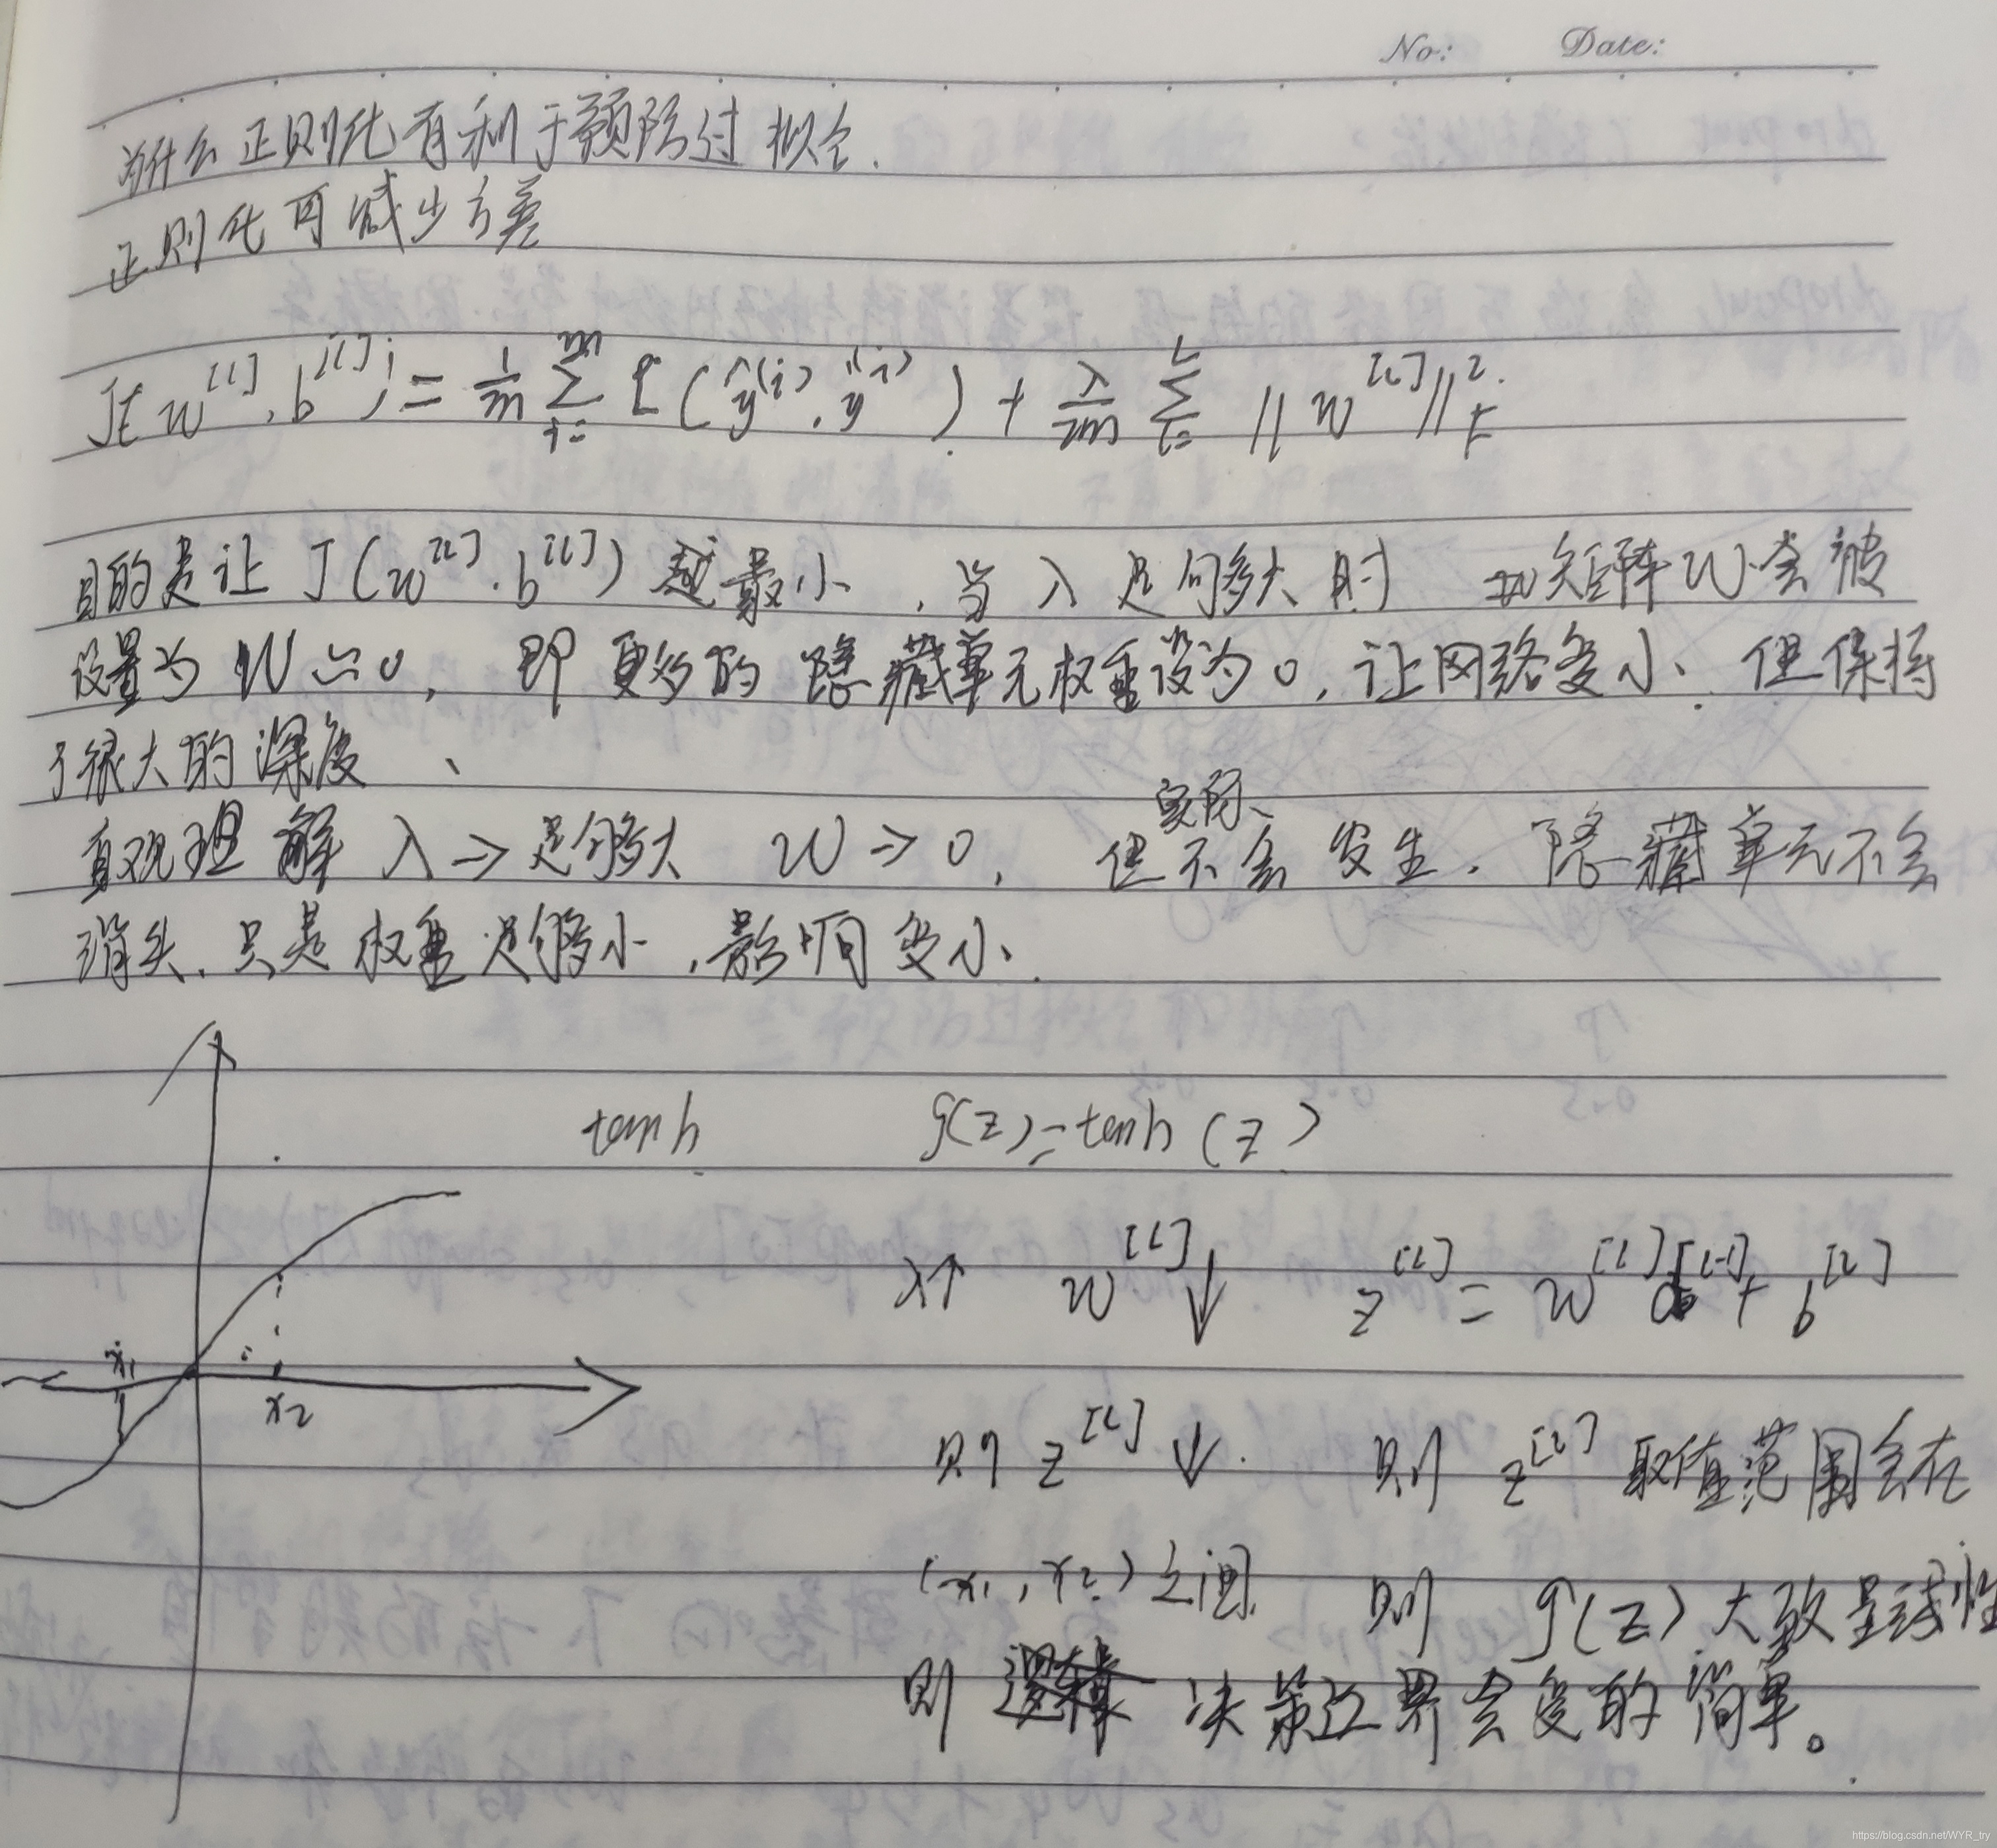 No: Date:
为什么正则化有利于预防过拟合.
正则化可减少方差
J(w^[l], b^[l]) = 1/m Σ_{i=}^{m} L(ŷ^(i), y^(i)) + λ/2m Σ_{l=}^{L} ||w^[l]||²_F
目的是让 J(w^[l], b^[l]) 越最小, 当 λ 足够大时 矩阵W会被
设置为 W≈0, 即更多的隐藏单元权重设为0, 让网络变小、但保持
了很大的深度、
实际、
直观理解 λ→足够大 W→0, 但不会发生. 隐藏单元不会
消失、只是权重足够小, 影响变小、
tanh g(z)=tanh(z)
λ↑ w^[l]↓ z^[l] = w^[l]a^[l-1]+b^[l]
x₁
x₂
则 z^[l]↓. 则 z^[l] 取值范围会在
(x₁, x₂)之间 则 g(z)大致呈线性
则 决策边界会变的简单。
https://blog.csdn.net/WYR_try